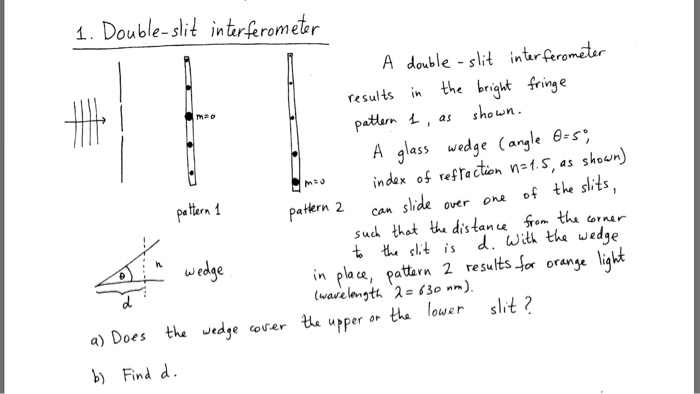 1. Double-slit interferometer
A double-slit interferometer
results in the bright fringe
pattern 1, as shown.
A glass wedge (angle θ=5°,
index of refraction n=1.5, as shown)
can slide over one of the slits,
such that the distance from the corner
to the slit is d. With the wedge
in place, pattern 2 results for orange light
(wavelength λ=630 nm).
m=0
m=0
pattern 1
pattern 2
θ
n
d
wedge
a) Does the wedge cover the upper or the lower slit?
b) Find d.